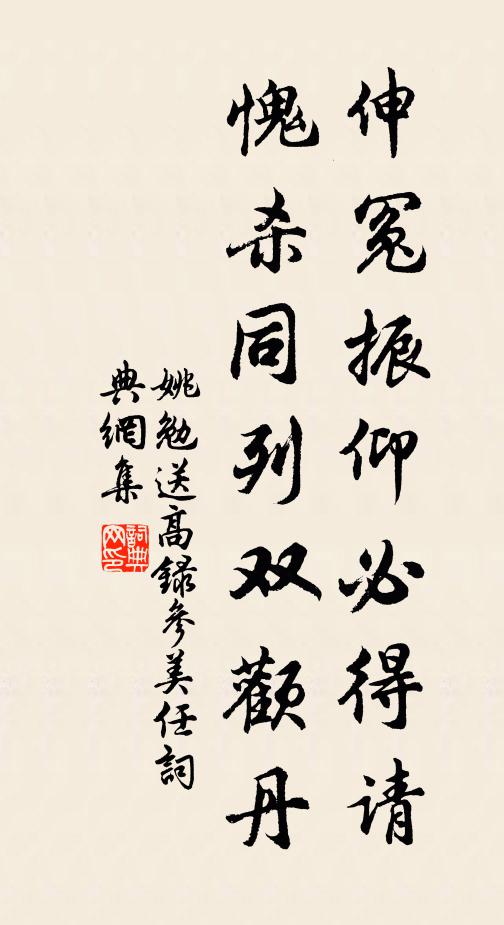 伸冤振仰必得请
愧杀同列双颧丹
姚勉送高録參美任詞
典網集
詞典網印